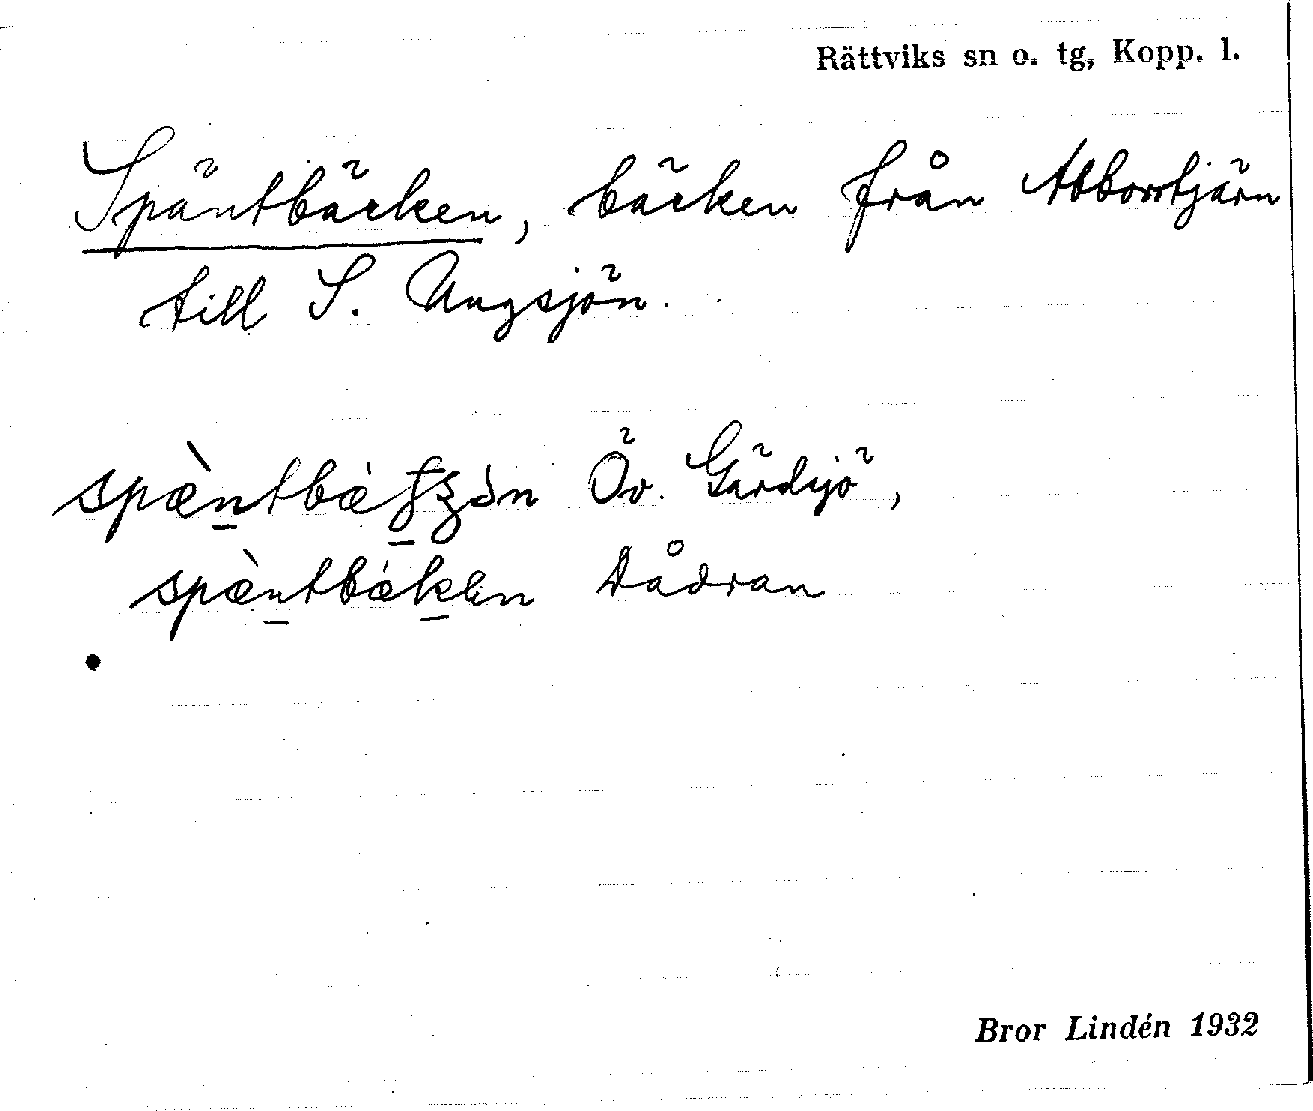 Rättviks sn o. tg, Kopp. l.
Späntbäcken, bäcken från Abborrtjärn
till S. Ungsjön.
Öv. Gärdsjö,
spæ̀ntbákən Dådran
Bror Lindén 1932